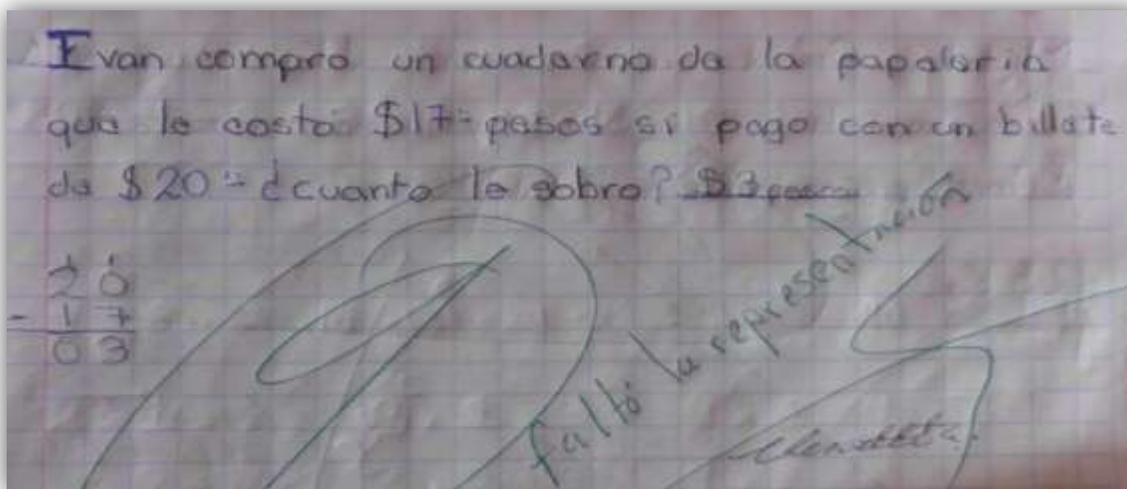 Ivan compro un cuaderno de la papeleria
que le costo $17= pesos si pago con un billete
de $20= ¿cuanto le sobro? $3 pesos
20
- 17
03
faltó la representación